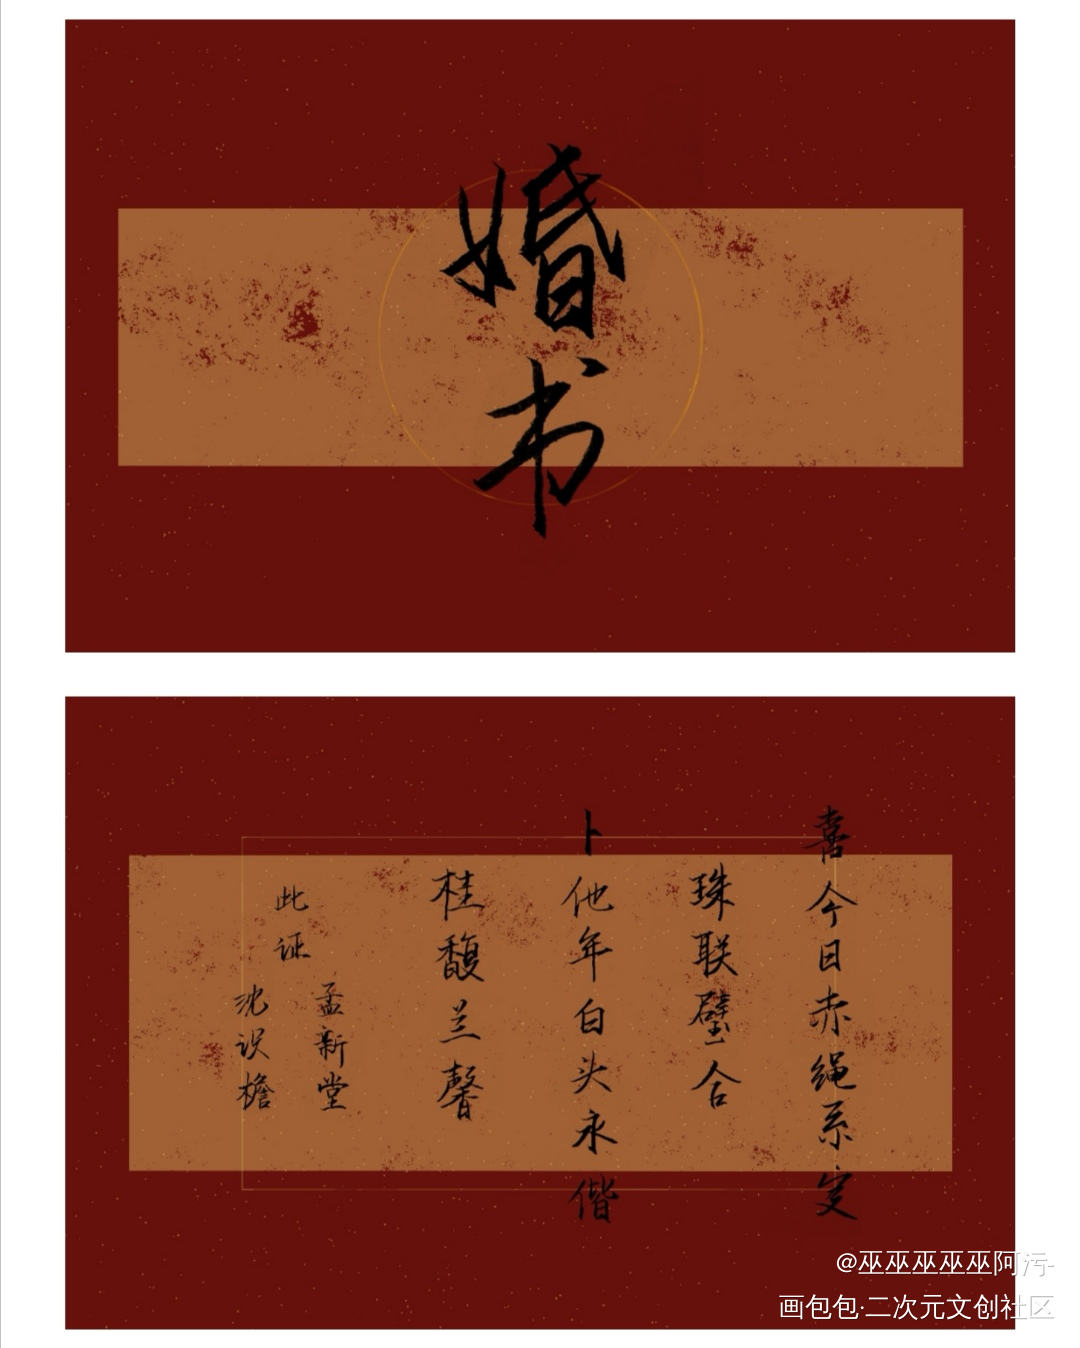 婚书
喜今日赤绳系定
珠联璧合
卜他年白头永偕
桂馥兰馨
此证
孟新堂
沈识檐
@巫巫巫巫巫阿污-
画包包·二次元文创社区